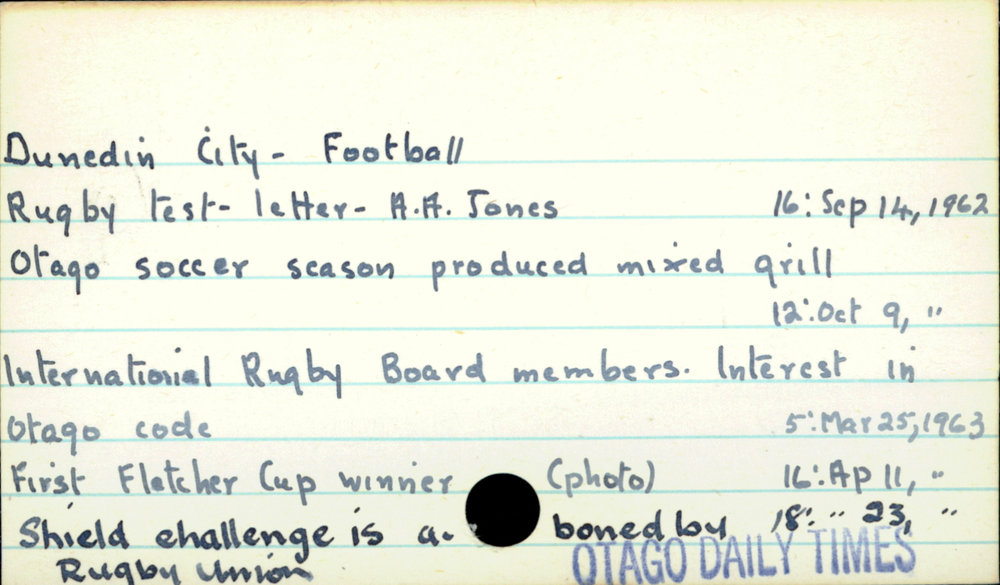 Dunedin City - Football
Rugby test - letter - A.A. Jones 16: Sep 14, 1962
Otago soccer season produced mixed grill
12: Oct 9, "
International Rugby Board members. Interest in
Otago code 5: Mar 25, 1963
First Fletcher Cup winner (photo) 16: Ap 11, "
Shield challenge is a boned by 18: " 23, "
Rugby Union
OTAGO DAILY TIMES